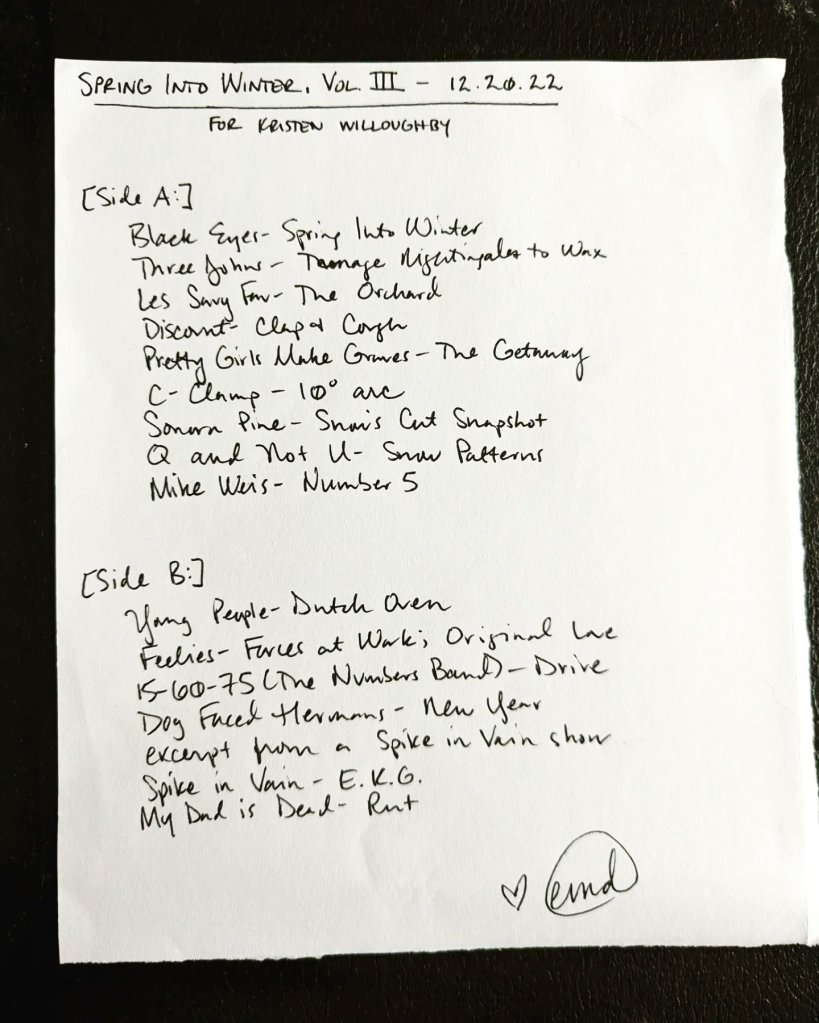 SPRING INTO WINTER, VOL. III - 12.20.22
FOR KRISTEN WILLOUGHBY
[Side A:]
Black Eyes- Spring Into Winter
Three Johns - Teenage Nightingales to Wax
Les Savy Fav- The Orchard
Discount- Clap & Cough
Pretty Girls Make Graves- The Getaway
C-Clamp - 10° arc
Sonora Pine- Snow's Cut Snapshot
Q and Not U- Snow Patterns
Mike Weis- Number 5
[Side B:]
Young People- Dutch Oven
Feelies- Forces at Work; Original Love
15-60-75 (The Numbers Band)- Drive
Dog Faced Hermans- New Year
excerpt from a Spike in Vain show
Spike in Vain- E.K.G.
My Dad is Dead- Rut
♡ emd